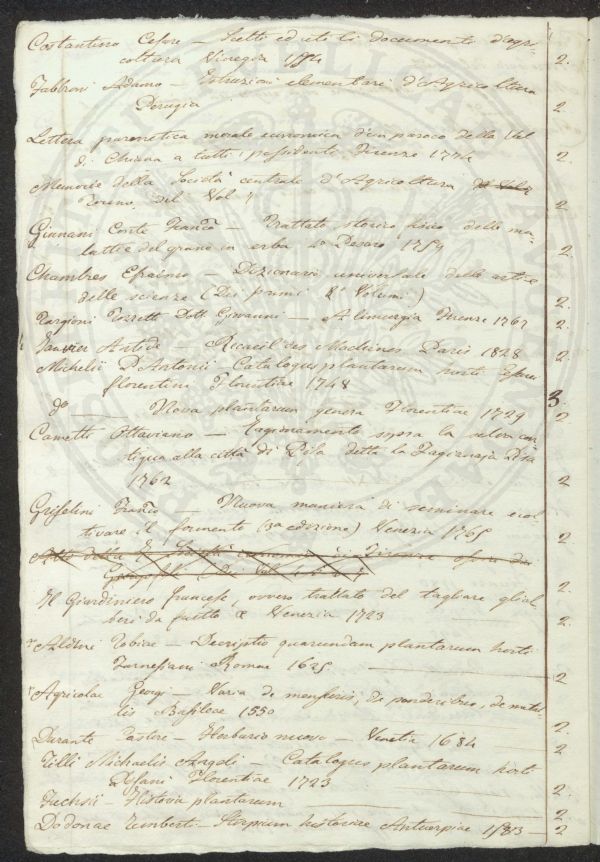 Costantino Cesare — Scelti ed utili documenti d'agri-
coltura Vinegia 1554 2.
Fabbroni Adamo — Istruzioni elementari d'Agricoltura
Perugia 2
Lettera parenetica morale economica d'un paroco della Val
di Chiana a tutti i possidenti Firenze 1774 2
Memorie della Società centrale d'Agricoltura
Torino del Vol 2
Ginnani Conte Franco — Trattato storico fisico delle ma-
lattie del grano in erba Pesaro 1759 2.
Chambres Efraimo — Dizionario universale delle arti e
delle scienze (Dei primi 8 Volumi) 2.
Targioni Tozzetti Dott Giovanni — Alimurgia Firenze 1767 2.
Janvier Antide — Recueil des Machines Paris 1828 2
Michelii P. Antonii Catalogus plantarum horti Cesarei
florentini Florentiae 1748 3.
do — Nova plantarum genera Florentiae 1729 2
Cametti Ottaviano — Ragionamento sopra la selva con-
tigua alla città di Pisa detta la Tagianaja Pisa
1762 2
Griselini Franco — Nuova maniera di seminare e col-
tivare il formento (3a edizione) Venezia 1765 2
Atti della Società economica di Firenze ossia de
Georgofili (Dei Vol 2.
Il Giardiniero francese, ovvero trattato del tagliare gl'al-
beri da frutto & Venezia 1723 2.
Aldini Tobiae — Descriptio quarundam plantarum horti
Farnesiani Romae 1625 2
Agricolae Georgi — Varia de mensuris, di ponderibus, de metal-
lis Basileae 1550 2.
Durante Castore — Herbario nuovo — Venetia 1684 2
Tilli Michaelis Angeli — Catalogus plantarum horti
Pisani Florentiae 1723 2.
Fuchsii — Historia plantarum 2
Dodonae Remberti — Stirpium historiae Antuerpiae 1583 — 2